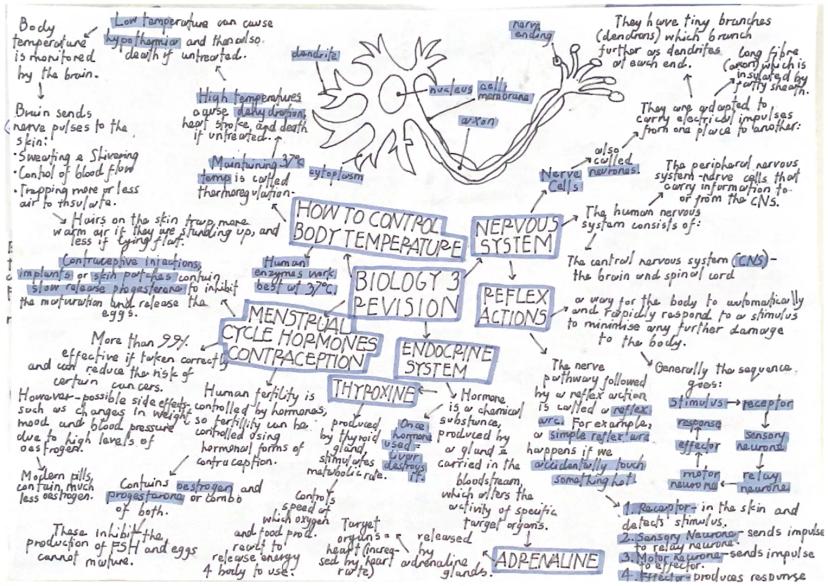 Body
temperature
is monitored
by the brain.
Low temperature can cause
hypothermia and then also
death if untreated.
Brain sends
nerve pulses to the
skin:
• Sweating & Shivering
• Control of blood flow
• Trapping more or less
air to insulate.
High temperatures
cause dehydration,
heat stroke, and death
if untreated.
Maintaining 37°C
temp is called
thermoregulation.
Hairs on the skin trap more
warm air if they are standing up, and
less if lying flat.
dendrite
nucleus
cell
membrane
axon
cytoplasm
nerve
ending
They have tiny branches
(dendrons) which branch
further as dendrites
at each end.
Long fibre
(axon) which is
insulated by
fatty sheath.
They are adapted to
carry electrical impulses
from one place to another:
also
called
neurones.
Nerve
Cells
The peripheral nervous
system-nerve cells that
carry information to
or from the CNS.
The human nervous
system consists of:
The central nervous system (CNS) -
the brain and spinal cord
HOW TO CONTROL
BODY TEMPERATURE
NERVOUS
SYSTEM
Human
enzymes work
best at 37°C.
BIOLOGY 3
REVISION
REFLEX
ACTIONS
a way for the body to automatically
and rapidly respond to a stimulus
to minimise any further damage
to the body.
Contraceptive injections,
implants or skin patches contain
slow release progesterone to inhibit
the maturation and release the
eggs.
MENSTRUAL
CYCLE HORMONES
CONTRACEPTION
ENDOCRINE
SYSTEM
THYROXINE
More than 99%
effective if taken correctly
and can reduce the risk of
certain cancers.
However-possible side effects
such as changes in weight,
mood and blood pressure
due to high levels of
oestrogen.
Modern pills
contain much
less oestrogen.
Human fertility is
controlled by hormones,
so fertility can be
controlled using
hormonal forms of
contraception.
Contains oestrogen and
progesterone or combo
of both.
These inhibit the
production of FSH and eggs
cannot mature.
produced
by thyroid
gland
stimulates
metabolic rate.
Once
hormone
used =
liver
destroys
it.
Hormone
is a chemical
substance,
produced by
a gland &
carried in the
bloodstream
which alters the
activity of specific
target organs.
Controls
speed at
which oxygen
and food prod.
react to
release energy
4 body to use.
Target
organs =
heart (increa-
sed by heart
rate)
released
by
adrenaline
glands.
ADRENALINE
The nerve
pathway followed
by a reflex action
is called a reflex
arc. For example,
a simple reflex arc
happens if we
accidentally touch
something hot.
Generally the sequence
goes:
stimulus → receptor
response
sensory
neurone
effector
motor
neurone
relay
neurone
1. Receptor - in the skin and
detects stimulus.
2. Sensory Neurone - sends impulse
to relay neurone.
3. Motor neurone - sends impulse
to effector.
4. Effector - produces response